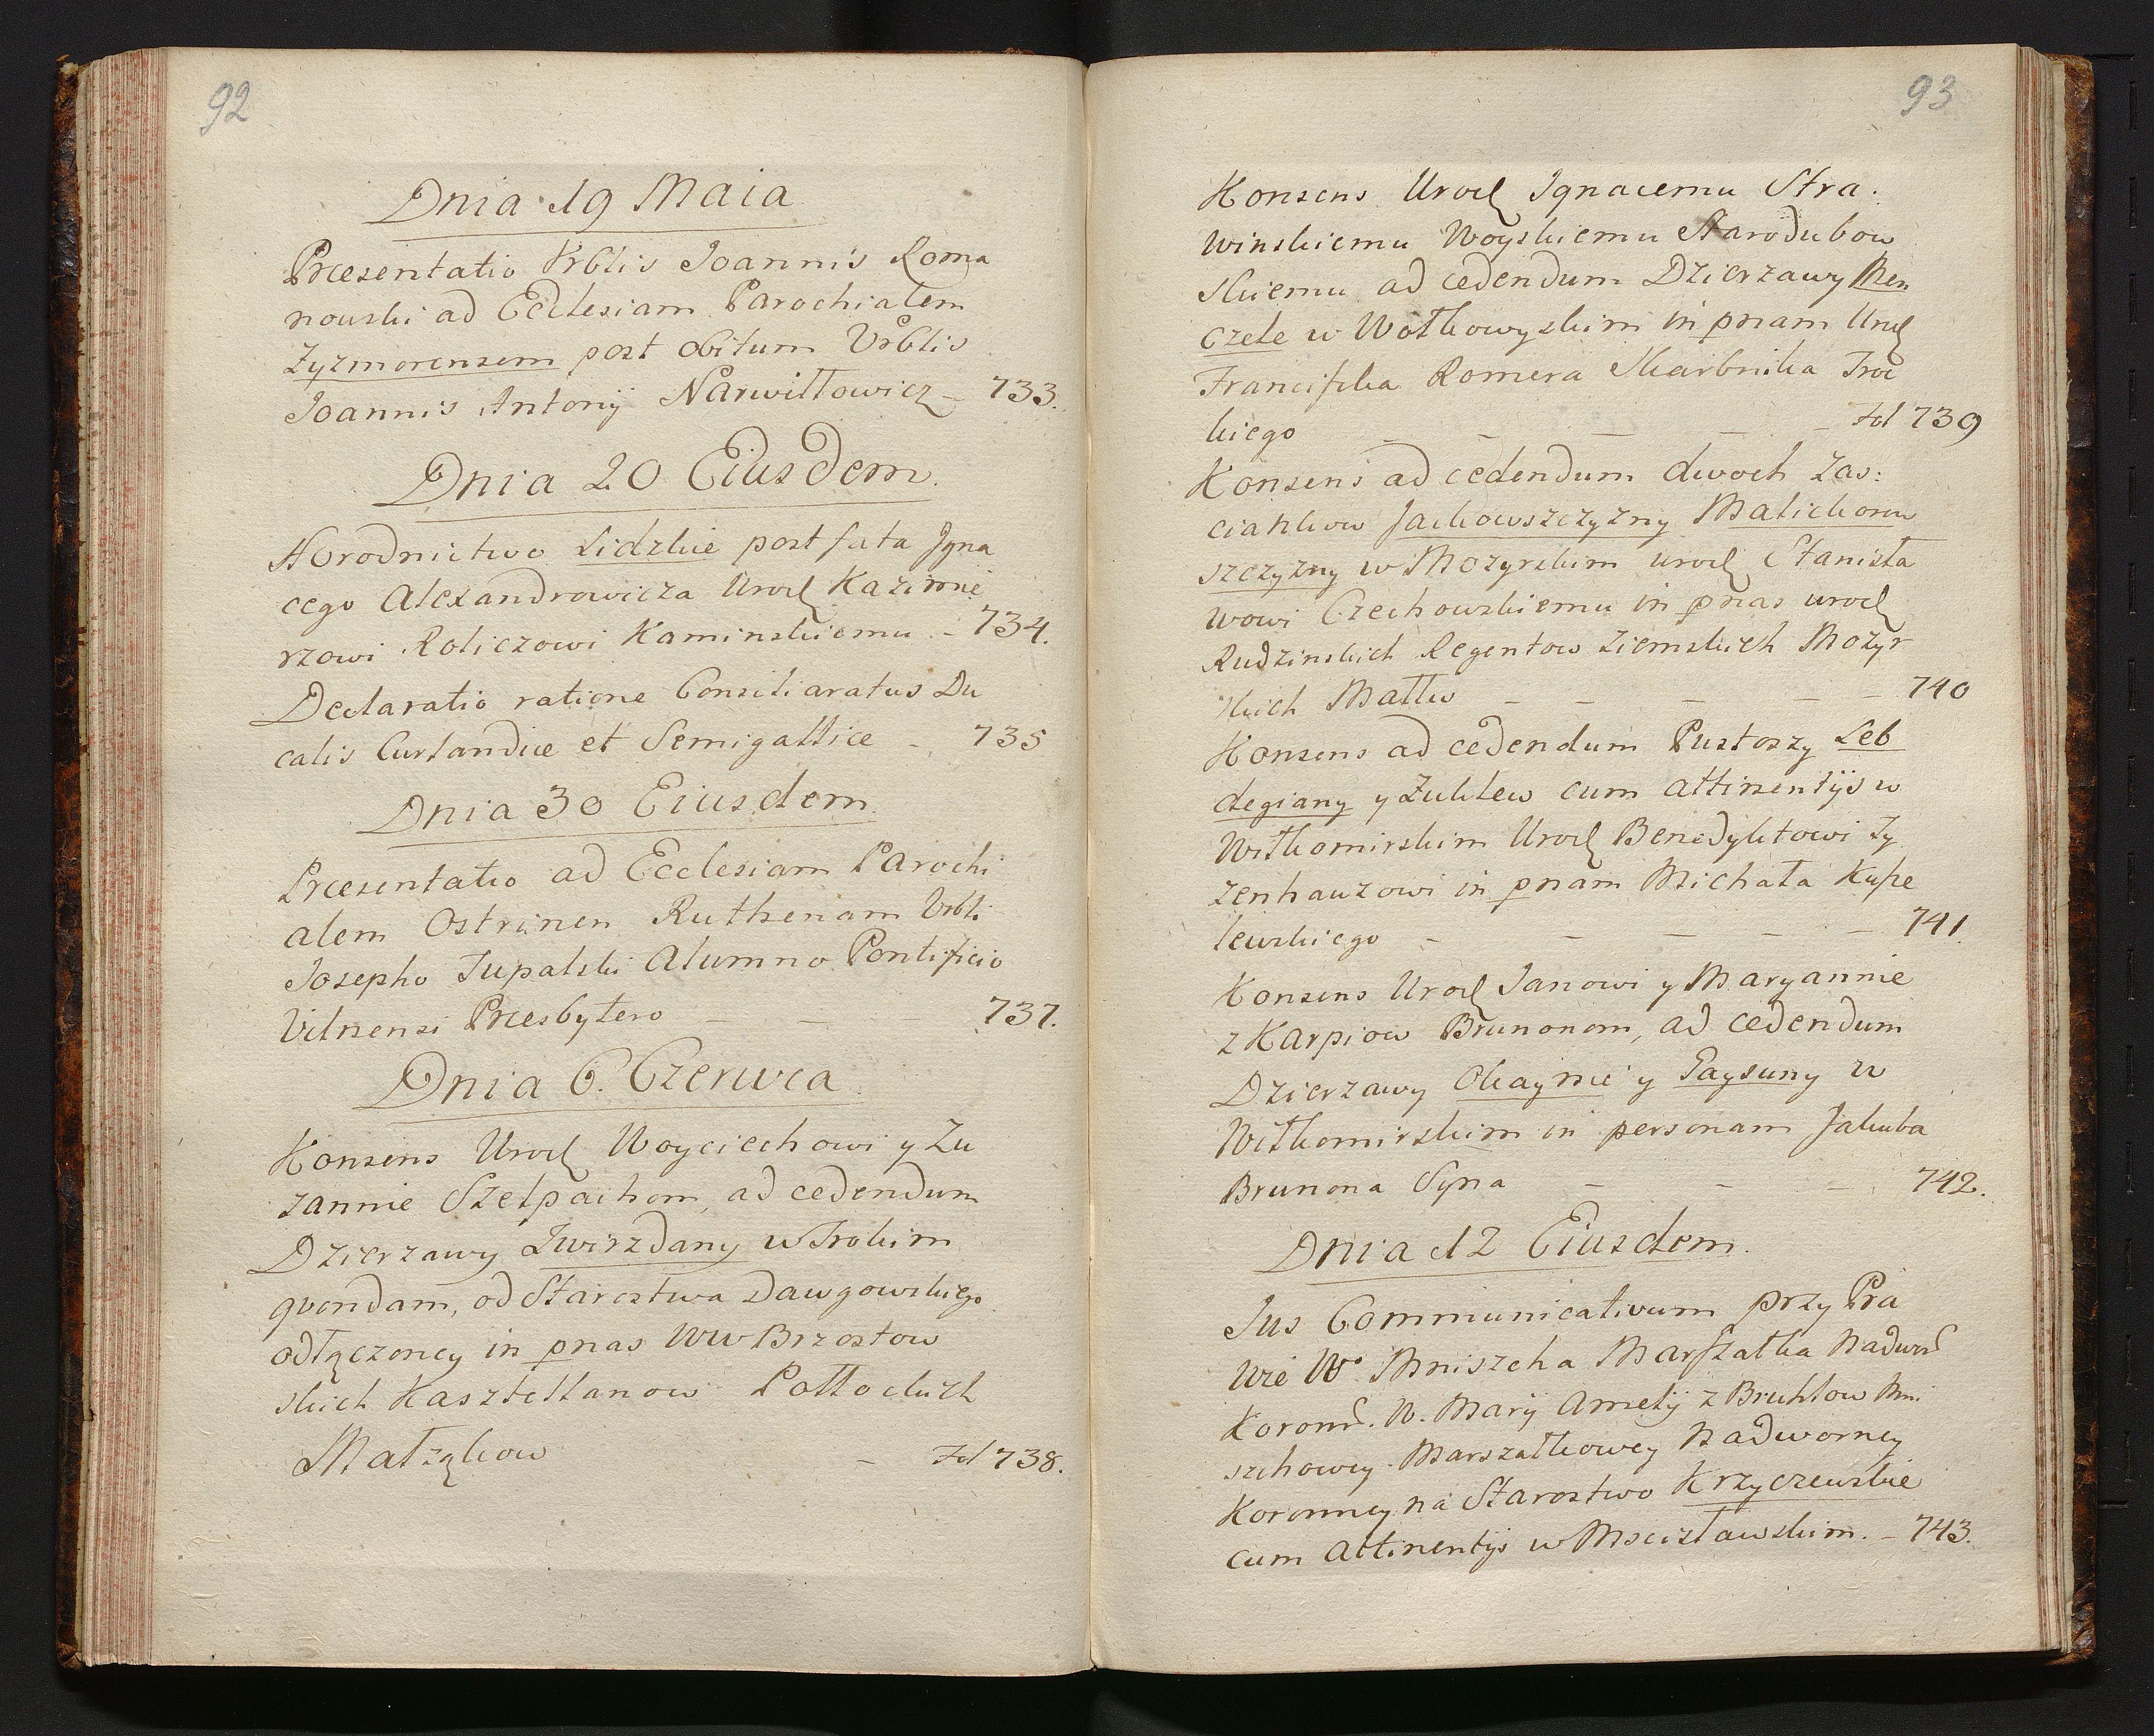 92
Dnia 19 Maia
Præsentatio Vrblis Joannis Roma
nowski ad Ecclesiam Parochialem
Zyzmorensem post obitum Vrblis
Joannis Antonÿ Narwiłłowicz – 733.
Dnia 20 Eiusdem.
Horodnictwo Lidzkie post fata Jgna
cego Alexandrowicza Urodz Kazimie
rzowi Roliczowi Kaminskiemu – 734.
Declaratio ratione Consiliaratus Du
calis Curlandiæ et Semigalliæ – 735
Dnia 30 Eiusdem.
Præsentatio ad Ecclesiam Parochi
alem Ostrinen Ruthenam Vrbli
Josepho Tupalski Alumno Pontificio
Vilnensi Præsbytero – – – 737.
Dnia 6. Czerwca
Konsens Urodz Woyciechowi y Zu
zannie Szelpachom, ad cedendum
Dzierzawy Zwirzdany w Trokim
qvondam, od Starostwa Dawgowskiego
odłączoney in pnas WW Brzostow
skich Kasztellanow Połłockich
Małząkow – Fol 738.
93
Konsens Urodz Jgnacemu Stra:
winskiemu Woyskiemu Starodubow
skiemu ad cedendum Dzierzawy Men
czele w Wołkowyskim in pnam Urodz
Franciszka Romera Skarbnika Troc
kiego – – – – – Fol 739
Konsens ad cedendum dwoch Zas:
ciankow Jackowszczyzny Malickow
szczyzny w Mozyrskim urodz Stanisła
wowi Czechowskiemu in pnas urodz
Rudzinskich Regentow Ziemskich Mozyr
skich Małłw – – – – – 740
Konsens ad cedendum Pustoszy Leb
degiany y Zuklew cum attinentÿs w
Wiłkomirskim Urodz Benedyktowi Ty
zenhauzowi in pnam Michała Kupe
lewskiego – – – – – 741.
Konsens Urodz Janowi y Maryannie
z Karpiow Brunonom, ad cedendum
Dzierzawy Okaynie y Paysuny w
Wiłkomirskim in personam Jakuba
Brunona Syna – – – 742.
Dnia 12 Eiusdem.
Jus Communicativum przy Pra
wie Wo Mniszcha Marszałka Nadwor
Koronn. W. Marÿ Amelÿ z Bruhlow Mni
szchowey Marszałkowey Nadworney
Koronney na Starostwo Krzyczewskie
cum Attinentÿs w Mscisławskim. – 743.